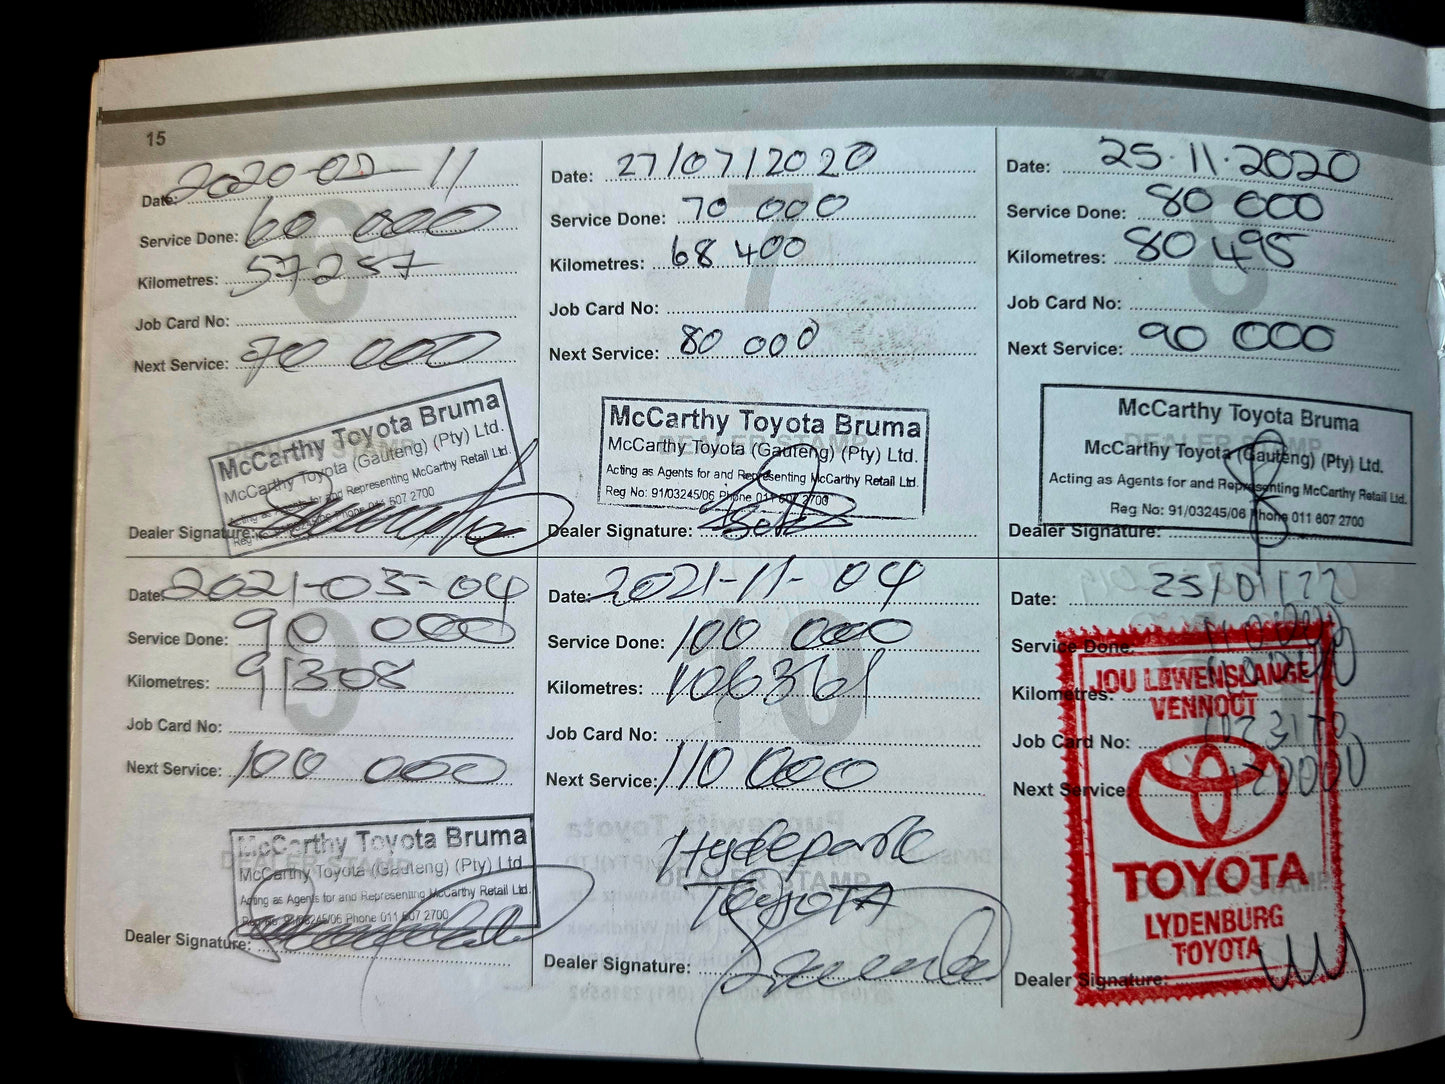 15
Date: 2020-02-11
Service Done: 60 000
Kilometres: 57257
Job Card No:
Next Service: 70 000
McCarthy Toyota Bruma
McCarthy Toyota (Gauteng) (Pty) Ltd.
Acting as Agents for and Representing McCarthy Retail Ltd.
Reg No: Phone 011 607 2700
Dealer Signature:
6
DEALER STAMP
Date: 27/07/2020
Service Done: 70 000
Kilometres: 68 400
Job Card No:
Next Service: 80 000
McCarthy Toyota Bruma
McCarthy Toyota (Gauteng) (Pty) Ltd.
Acting as Agents for and Representing McCarthy Retail Ltd.
Reg No: 91/03245/06 Phone 011 607 2700
Dealer Signature:
7
DEALER STAMP
Date: 25.11.2020
Service Done: 80 000
Kilometres: 80 495
Job Card No:
Next Service: 90 000
McCarthy Toyota Bruma
McCarthy Toyota (Gauteng) (Pty) Ltd.
Acting as Agents for and Representing McCarthy Retail Ltd.
Reg No: 91/03245/06 Phone 011 607 2700
Dealer Signature:
8
DEALER STAMP
Date: 2021-03-04
Service Done: 90 000
Kilometres: 91308
Job Card No:
Next Service: 100 000
McCarthy Toyota Bruma
McCarthy Toyota (Gauteng) (Pty) Ltd.
Acting as Agents for and Representing McCarthy Retail Ltd.
Reg No: 91/03245/06 Phone 011 607 2700
Dealer Signature:
9
DEALER STAMP
Date: 2021-11-04
Service Done: 100 000
Kilometres: 106361
Job Card No:
Next Service: 110 000
Hydepark
TOYOTA
Dealer Signature:
10
DEALER STAMP
Date: 25/01/22
Service Done:
Kilometres:
Job Card No:
Next Service: 120000
JOU LEWENSLANGE
VENNOOT
TOYOTA
LYDENBURG
TOYOTA
Dealer Signature: